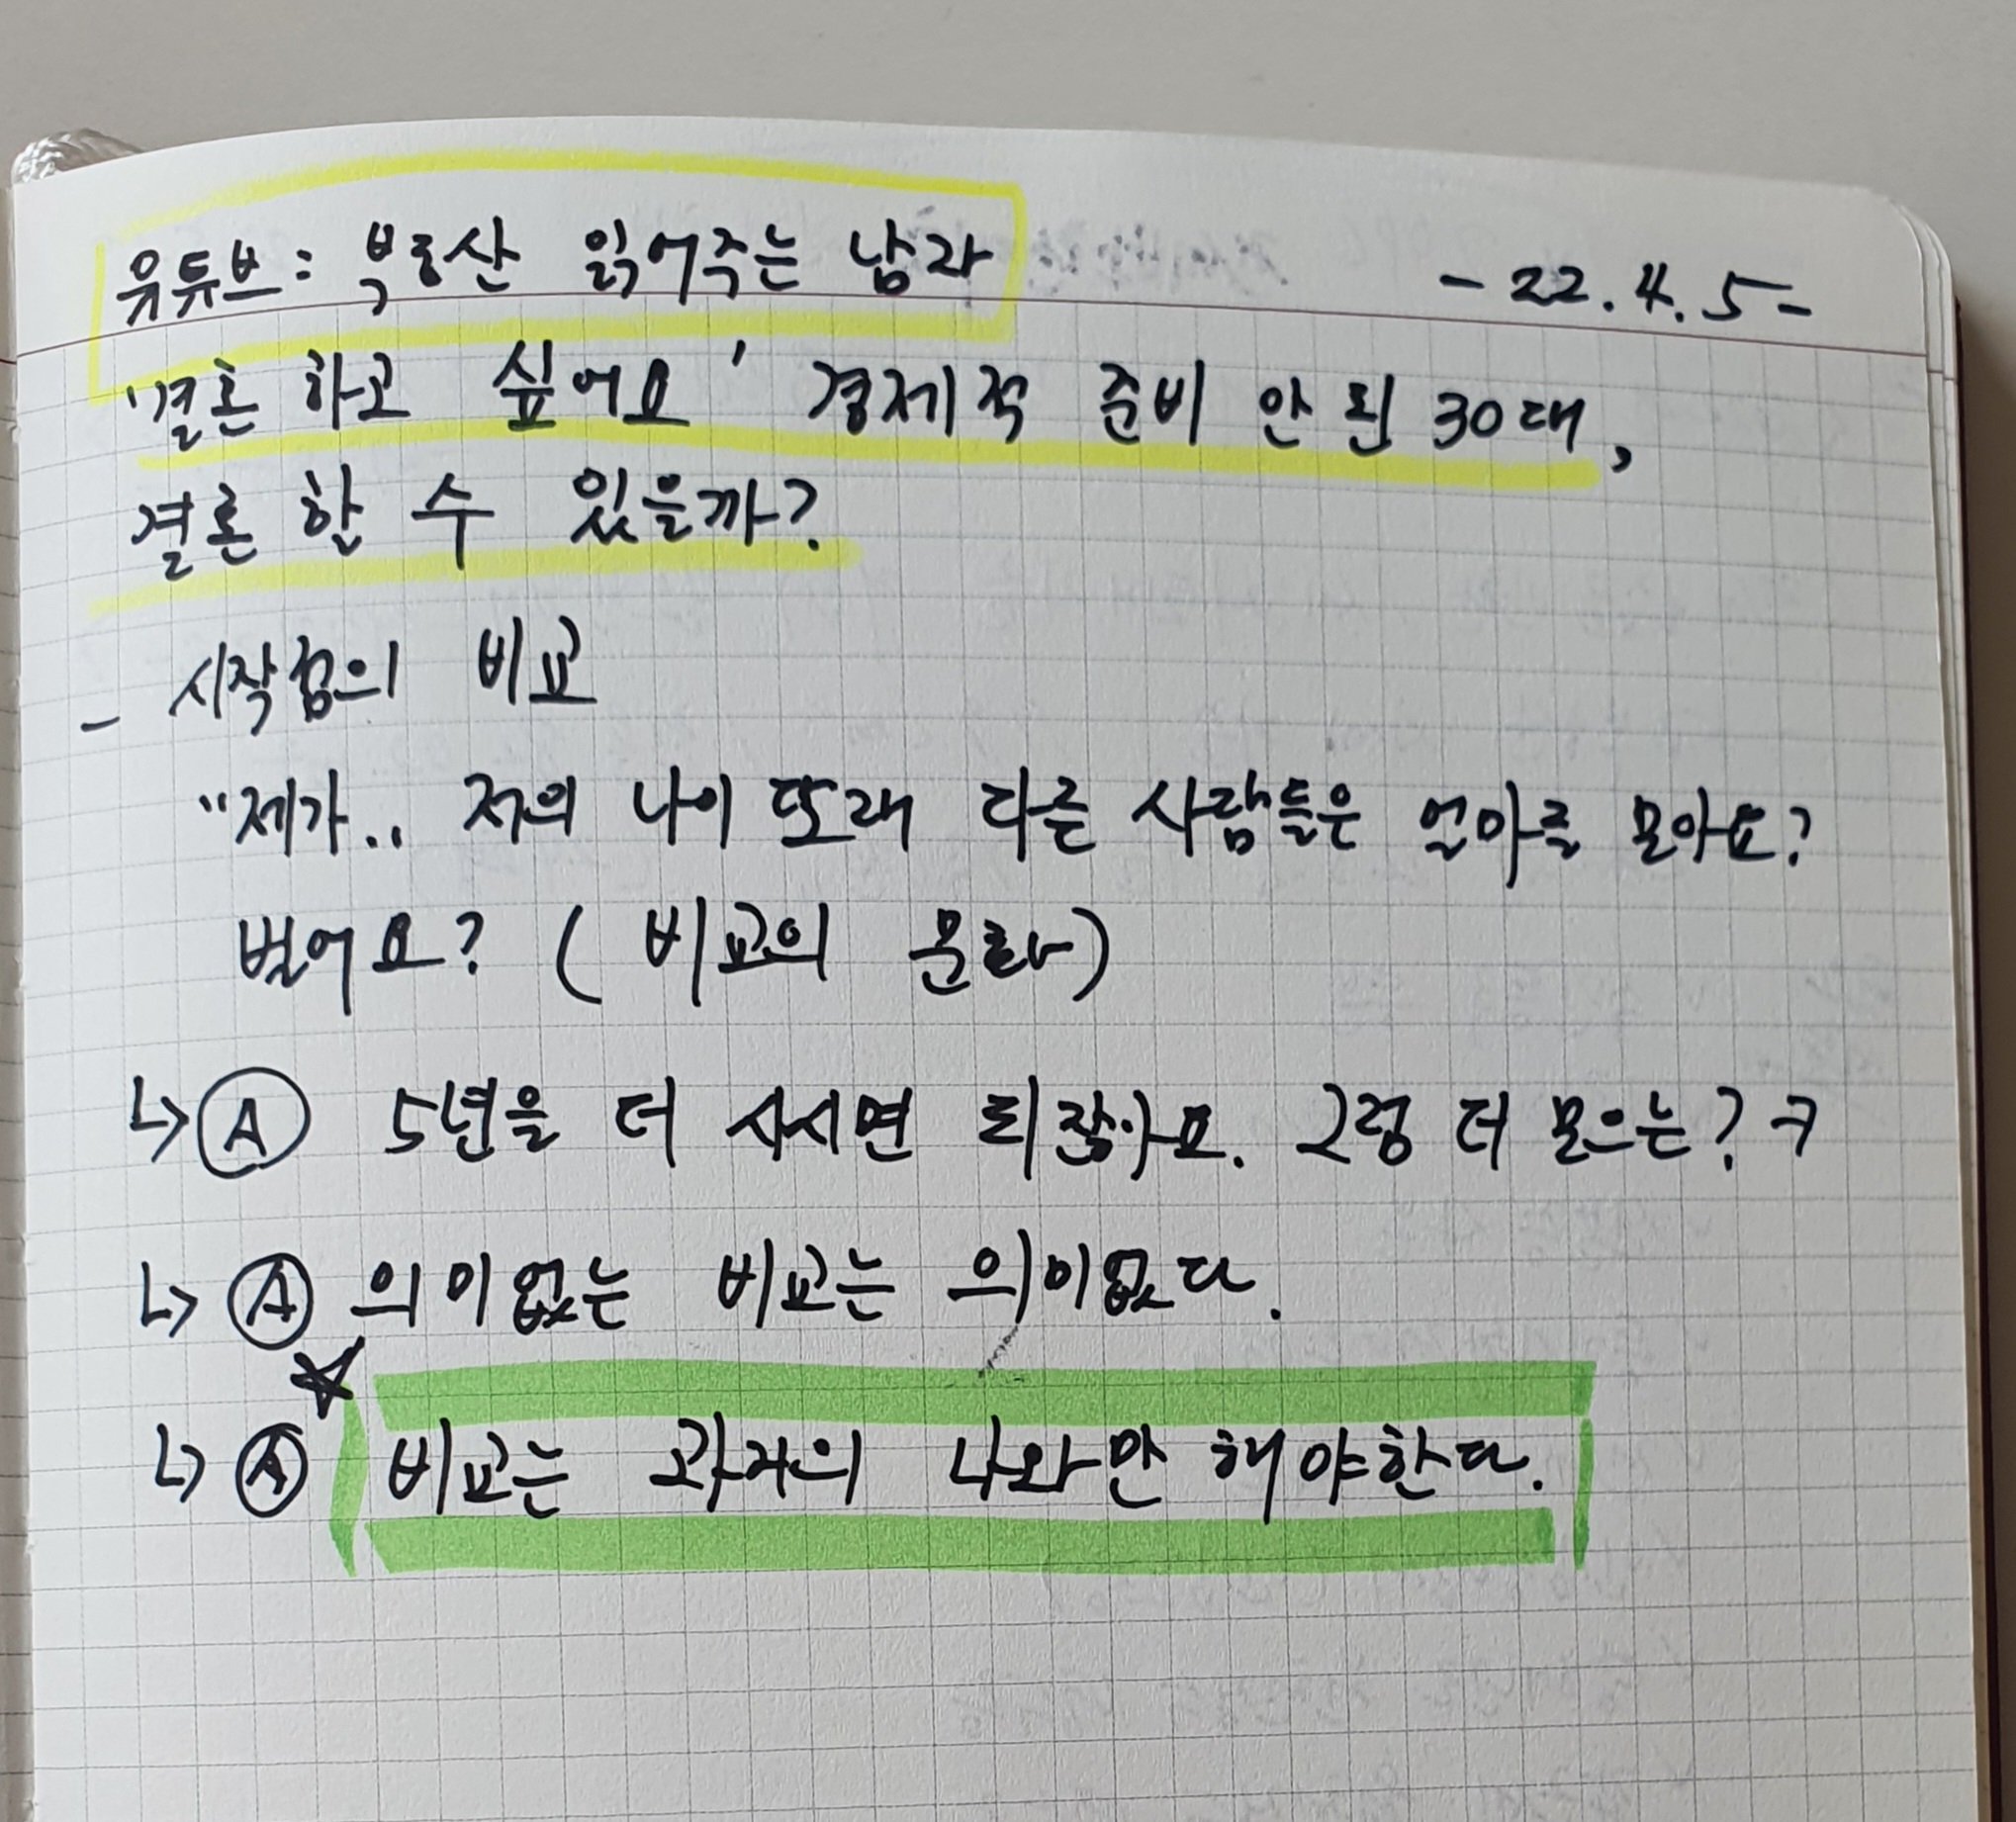 유튜브: 부동산 읽어주는 남자
- 22.4.5-
'결혼 하고 싶어요' 경제적 준비 안 된 30대,
결혼 할 수 있을까?
- 시작점의 비교
"제가.. 저의 나이 또래 다른 사람들은 얼마를 모아요?
벌어요? (비교의 문화)
↳ Ⓐ 5년을 더 사시면 되잖아요. 그럼 더 모으는? ㅋ
↳ Ⓐ 의미없는 비교는 의미없다.
★
↳ Ⓐ 비교는 과거의 나와만 해야한다.